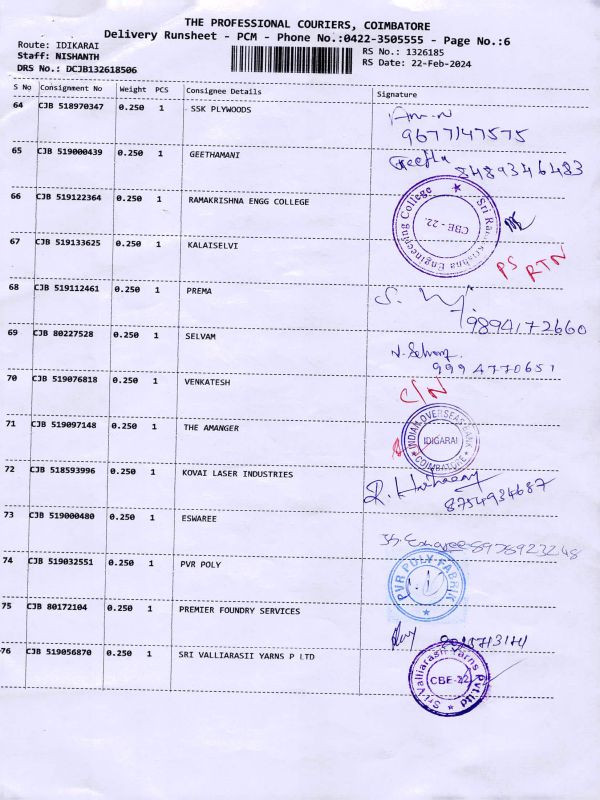 THE PROFESSIONAL COURIERS, COIMBATORE
Delivery Runsheet - PCM - Phone No.:0422-3505555 - Page No.:6
Route: IDIKARAI
Staff: NISHANTH
DRS No.: DCJB132618506
RS No.: 1326185
RS Date: 22-Feb-2024
S No Consignment No Weight PCS Consignee Details Signature
64 CJB 518970347 0.250 1 SSK PLYWOODS
9677147575
65 CJB 519000439 0.250 1 GEETHAMANI Geetha
8489346483
66 CJB 519122364 0.250 1 RAMAKRISHNA ENGG COLLEGE
Sri Ramakrishna Engineering College
CBE - 22.
67 CJB 519133625 0.250 1 KALAISELVI PS RTN
68 CJB 519112461 0.250 1 PREMA
9894172660
69 CJB 80227528 0.250 1 SELVAM N. Selvam.
9994770651
70 CJB 519076818 0.250 1 VENKATESH C/N
71 CJB 519097148 0.250 1 THE AMANGER
INDIAN OVERSEAS BANK
IDIGARAI
COIMBATORE
72 CJB 518593996 0.250 1 KOVAI LASER INDUSTRIES
8754934687
73 CJB 519000480 0.250 1 ESWAREE
8978923248
74 CJB 519032551 0.250 1 PVR POLY
PVR POLY FABRIK
75 CJB 80172104 0.250 1 PREMIER FOUNDRY SERVICES
76 CJB 519056870 0.250 1 SRI VALLIARASII YARNS P LTD
Sri Valliarasii Yarns Pvt Ltd
CBE-22